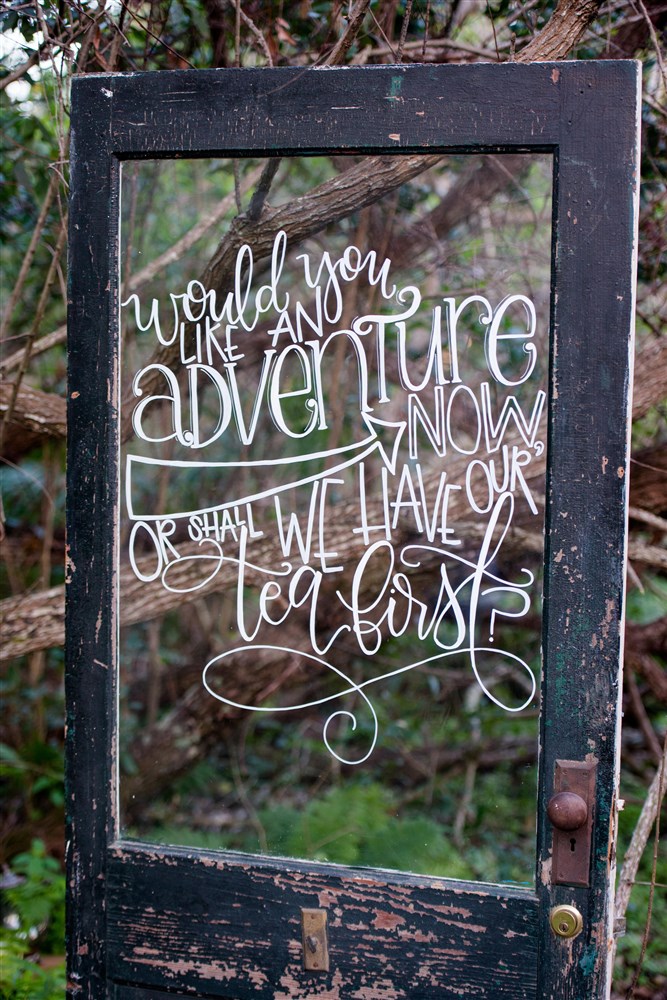 would you
LIKE AN
adventure
NOW,
OR SHALL WE HAVE OUR
tea first?